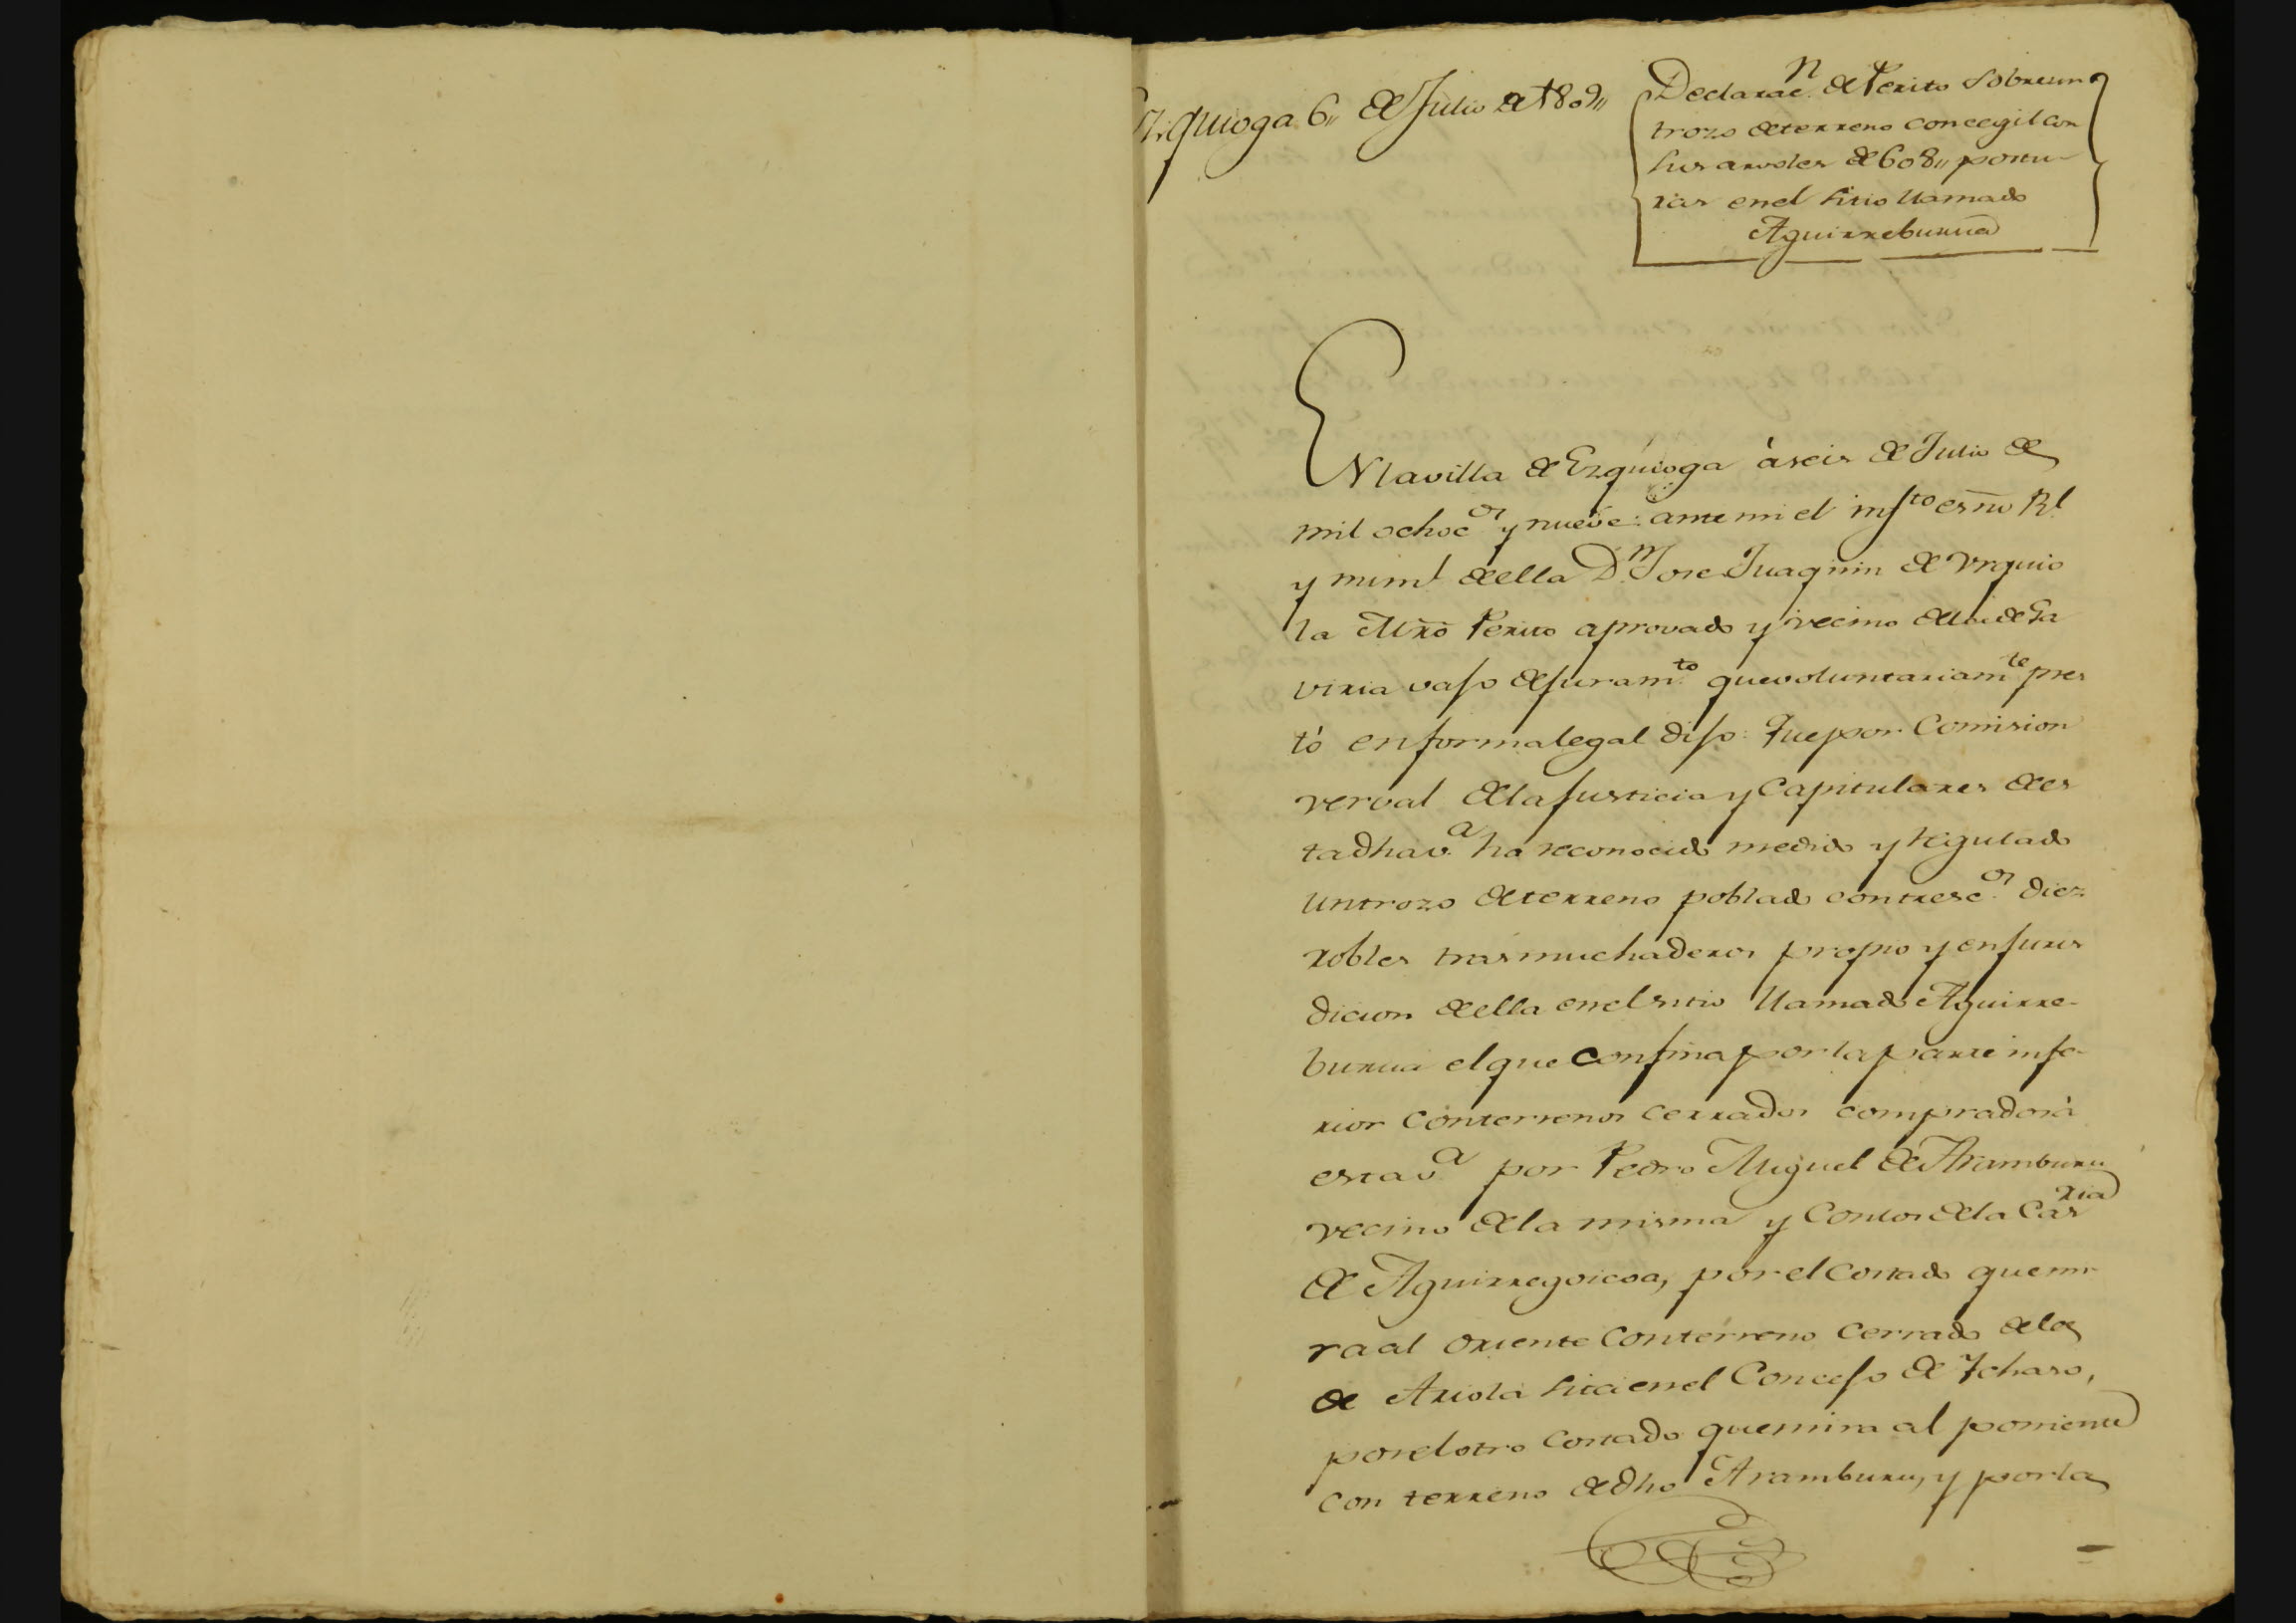 Ezquioga 6,, de Julio de 1809,,
Declarac.n de Perito sobre un
trozo de terreno concegil con
sus arvoles de 608,, postu-
ras en el sitio llamado
Aguirreburua
EN la villa de Ezquioga à seis de Julio de
mil ochoc.os y nueve: ante mi el infto esno Rl
y num.l de ella D.n Jose Juaquin de Urquio
la Mro Perito aprovado y vecino de la de Ga
viria vajo de juram.to que voluntariam.te pres
tò en forma legal dijo: Que por Comision
verval de la Justicia y Capitulares de es
ta dha v.a ha reconocido medido y regulado
un trozo de terreno poblado con tresc.os diez
robles trasmuchaderos propio y en juris
dicion de ella en el sitio llamado Aguirre-
burua el que confina por la parte infe-
rior con terrenos cerrados comprados à
esta v.a por Pedro Miguel de Aramburu
vecino de la misma y con los de la Casria
de Aguirregoicoa, por el costado que mi-
ra al oriente con terreno cerrado de la
de Ariola sita en el Concejo de Ychaso,
por el otro costado que mira al poniente
con terreno de dho Aramburu, y por la